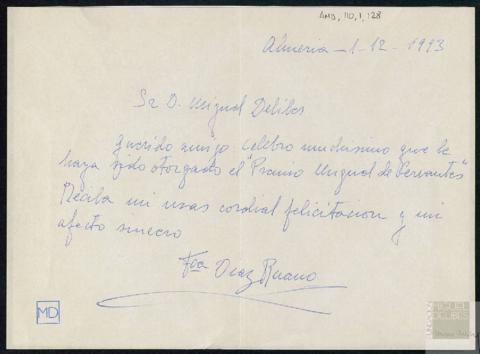 AMD, 110, 1, 128
Almeria - 1-12-1993
Sr D. Miguel Delibes
Querido amigo: celebro muchisimo que le
haya sido otorgado el "Premio Miguel de Cervantes"
Reciba mi mas cordial felicitacion y mi
afecto sincero
Fca Diaz Ruano
MD
MIGUEL
DELIBES